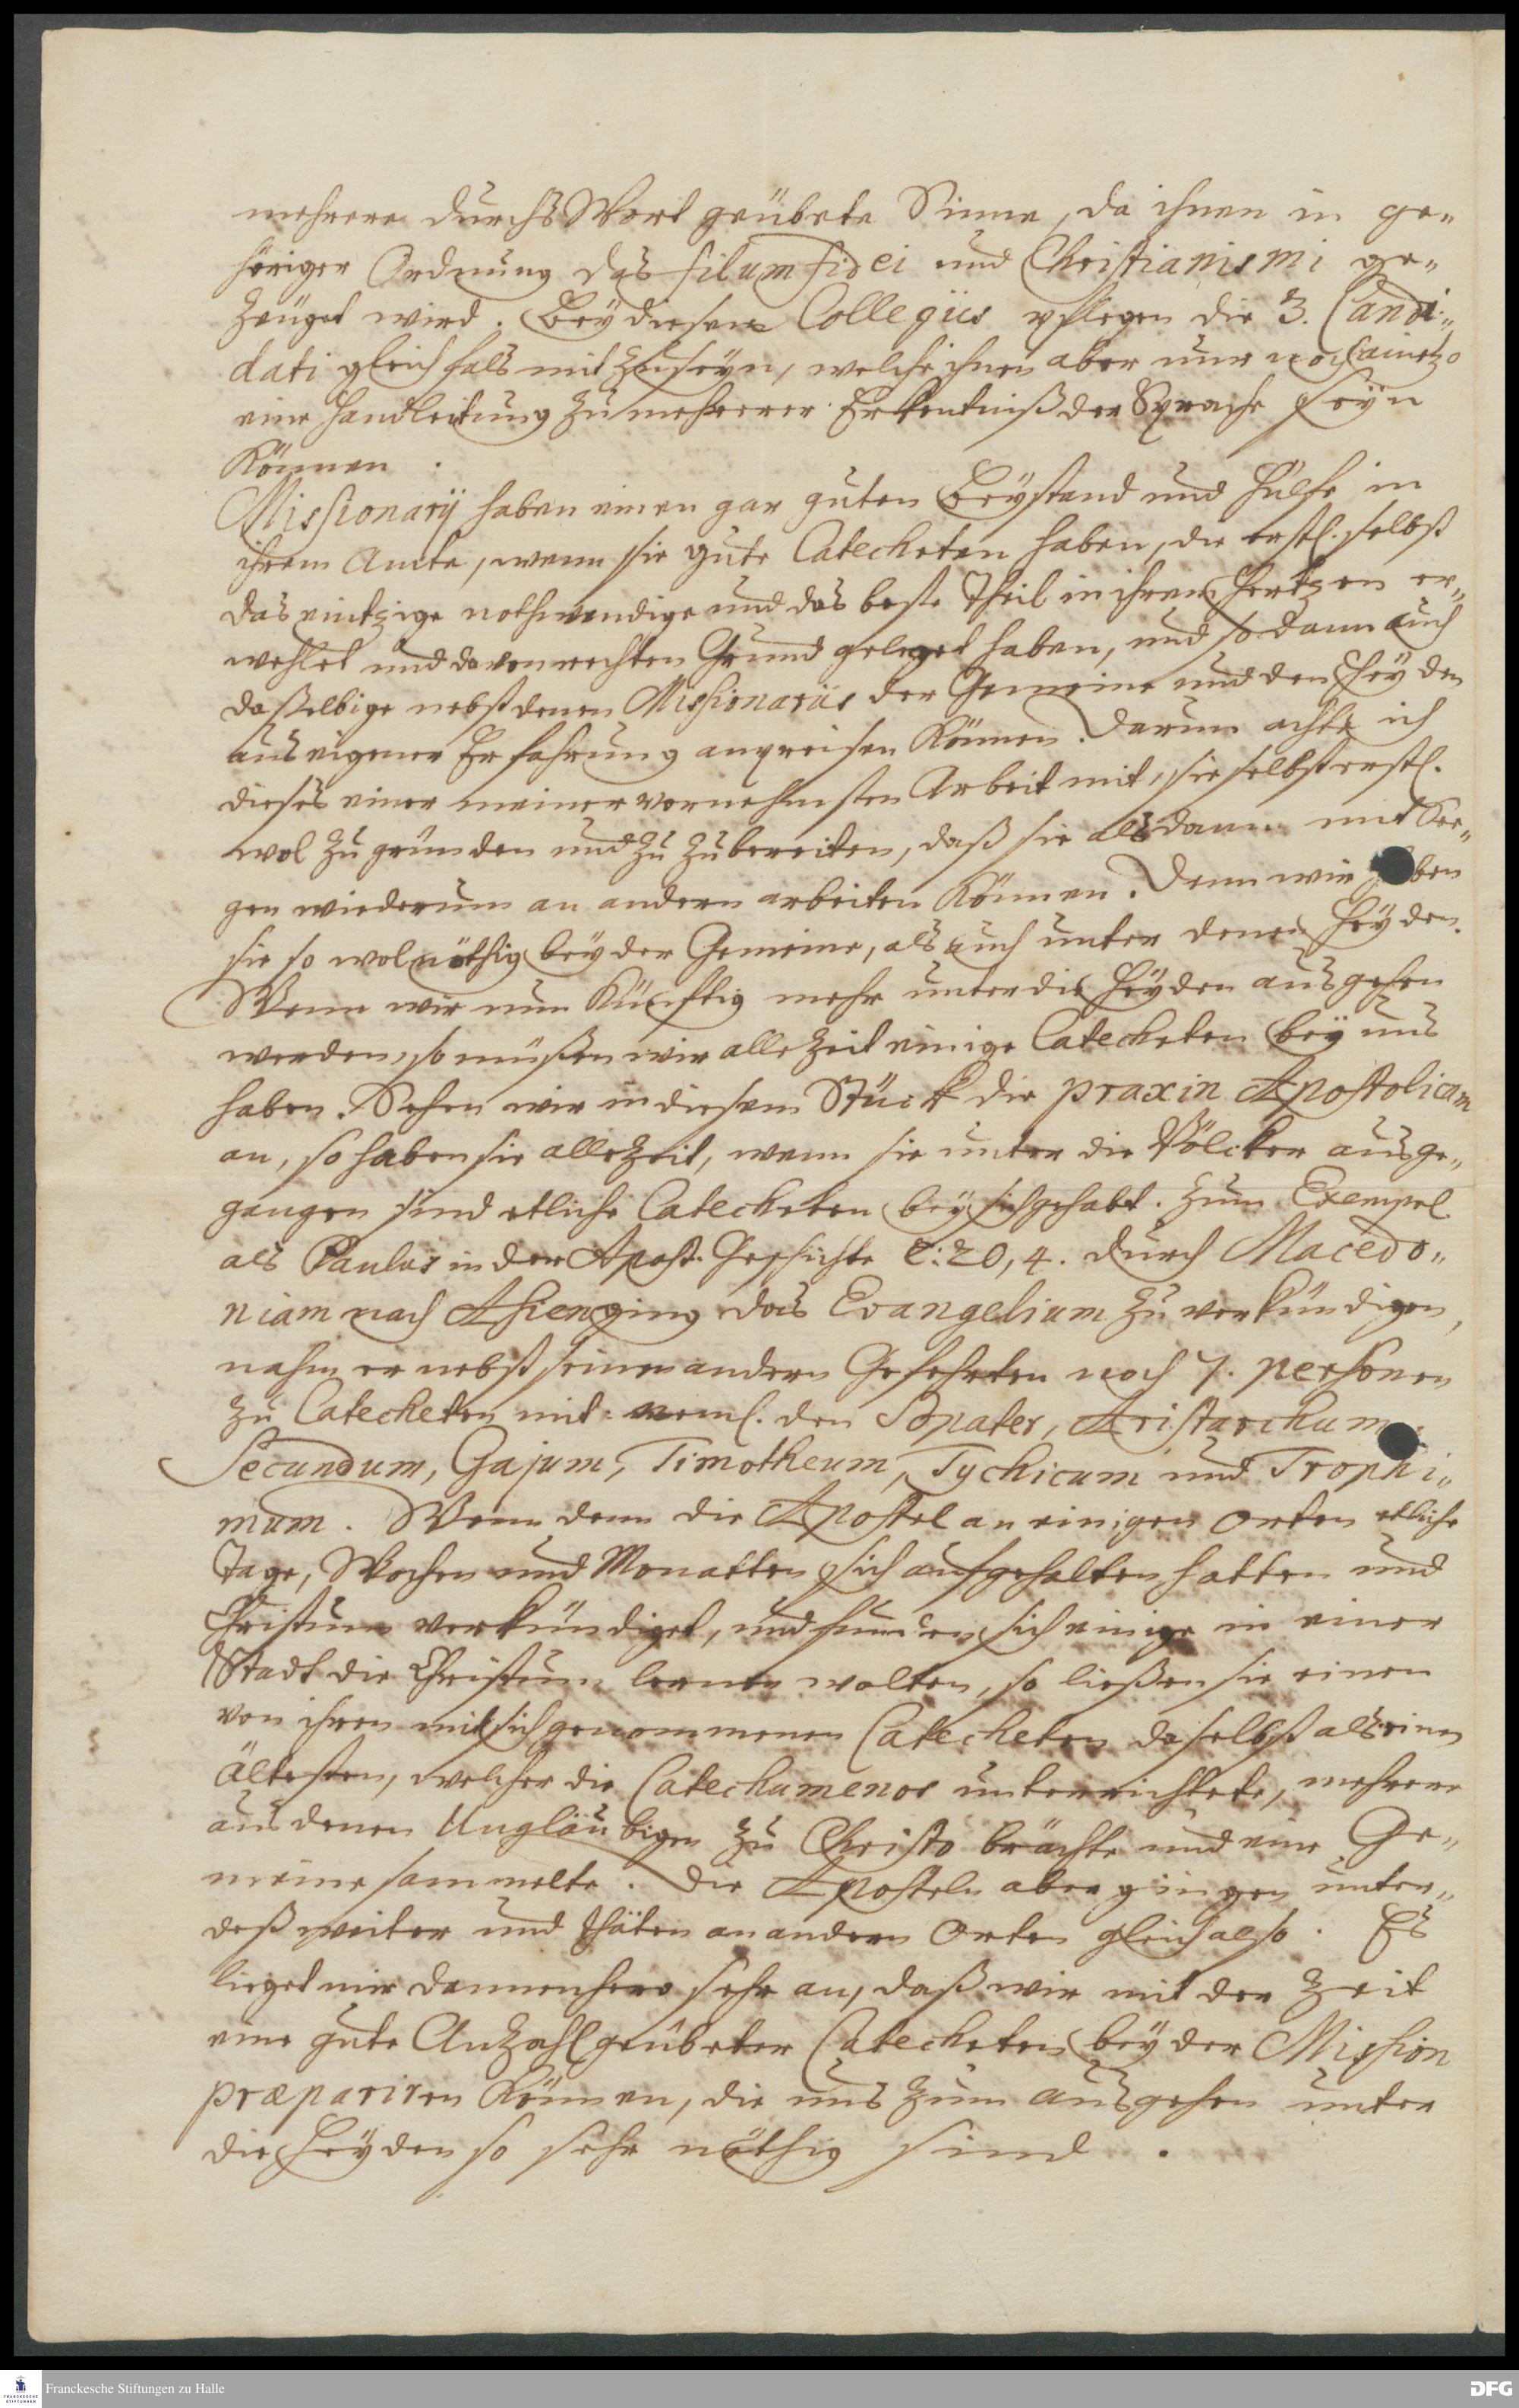 mehrere durchs Wort geübete Sinne, da ihnen in ge„
höriger Ordnung das filum fidei und Christianismi ge„
zeüget wird. Bey diesen Collegiis pflegen die 3. Candi„
dati gleichfals mit zu seyn, welche ihnen aber nur noch anietzo
eine Handleitung zu mehrerer Erkentniß der Sprache seyn
können.
Missionarii haben einen gar guten Beystand und Hülfe in
ihrem Amte, wenn sie gute Catecheten haben, die erstl. selbst
das eintzige nothwendige und das beste Theil in ihrem Hertzen er„
wehlet und davon rechten Grund geleget haben, und so dann auch
daßelbige nebst denen Missionariis der Gemeine und den Heyden
aus eigener Erfahrung anpreisen können. Darum achte ich
dieses einer meiner vornehmsten Arbeit mit, sie selbst erstl.
wol zu gründen und zu zubereiten, daß sie alsdann mit See„
gen wiederum an andern arbeiten können. Denn wir haben
sie so wol nöthig bey der Gemeine, als auch unter denen Heyden.
Wenn wir nun künftig mehr unter die Heyden ausgehen
werden, so müßen wir alle Zeit einige Catecheten bey uns
haben. Sehen wir in diesem Stück die praxin Apostolicam
an, so haben sie alle Zeit, wenn sie unter die Völcker ausge„
gangen sind etliche Catecheten bey sich gehabt. Zum Exempel
als Paulus in der Apost. Geschichte C: 20, 4. durch Macedo„
niam nach Asien ging das Evangelium zu verkündigen,
nahm er nebst seinen andern Gefehrten noch 7. personen
zu Catecheten mit: neml. den Sopater, Aristarchum,
Secundum, Gajum, Timotheum, Tychicum und Trophi„
mum. Wenn denn die Apostel an einigen Orten etliche
Tage, Wochen und Monatten sich aufgehalten hatten und
Christum verkündiget, und funden sich einige in einer
Stadt die Christum lernen wolten, so ließen sie einen
von ihren mit sich genommenen Catecheten daselbst als einen
Ältesten, welcher die Catechumenos unterrichtete, mehrere
aus denen Ungläubigen zu Christo brächte und eine Ge„
meine sammelte. Die Aposteln aber gingen unter„
deß weiter und thäten an andern Orten gleich also. Es
lieget mir dannenhero sehr an, daß wir mit der Zeit
eine gute Anzahl geübeter Catecheten bey der Mission
præpariren können, die uns zum ausgehen unter
die Heyden so sehr nöthig sind.
Franckesche Stiftungen zu Halle
DFG